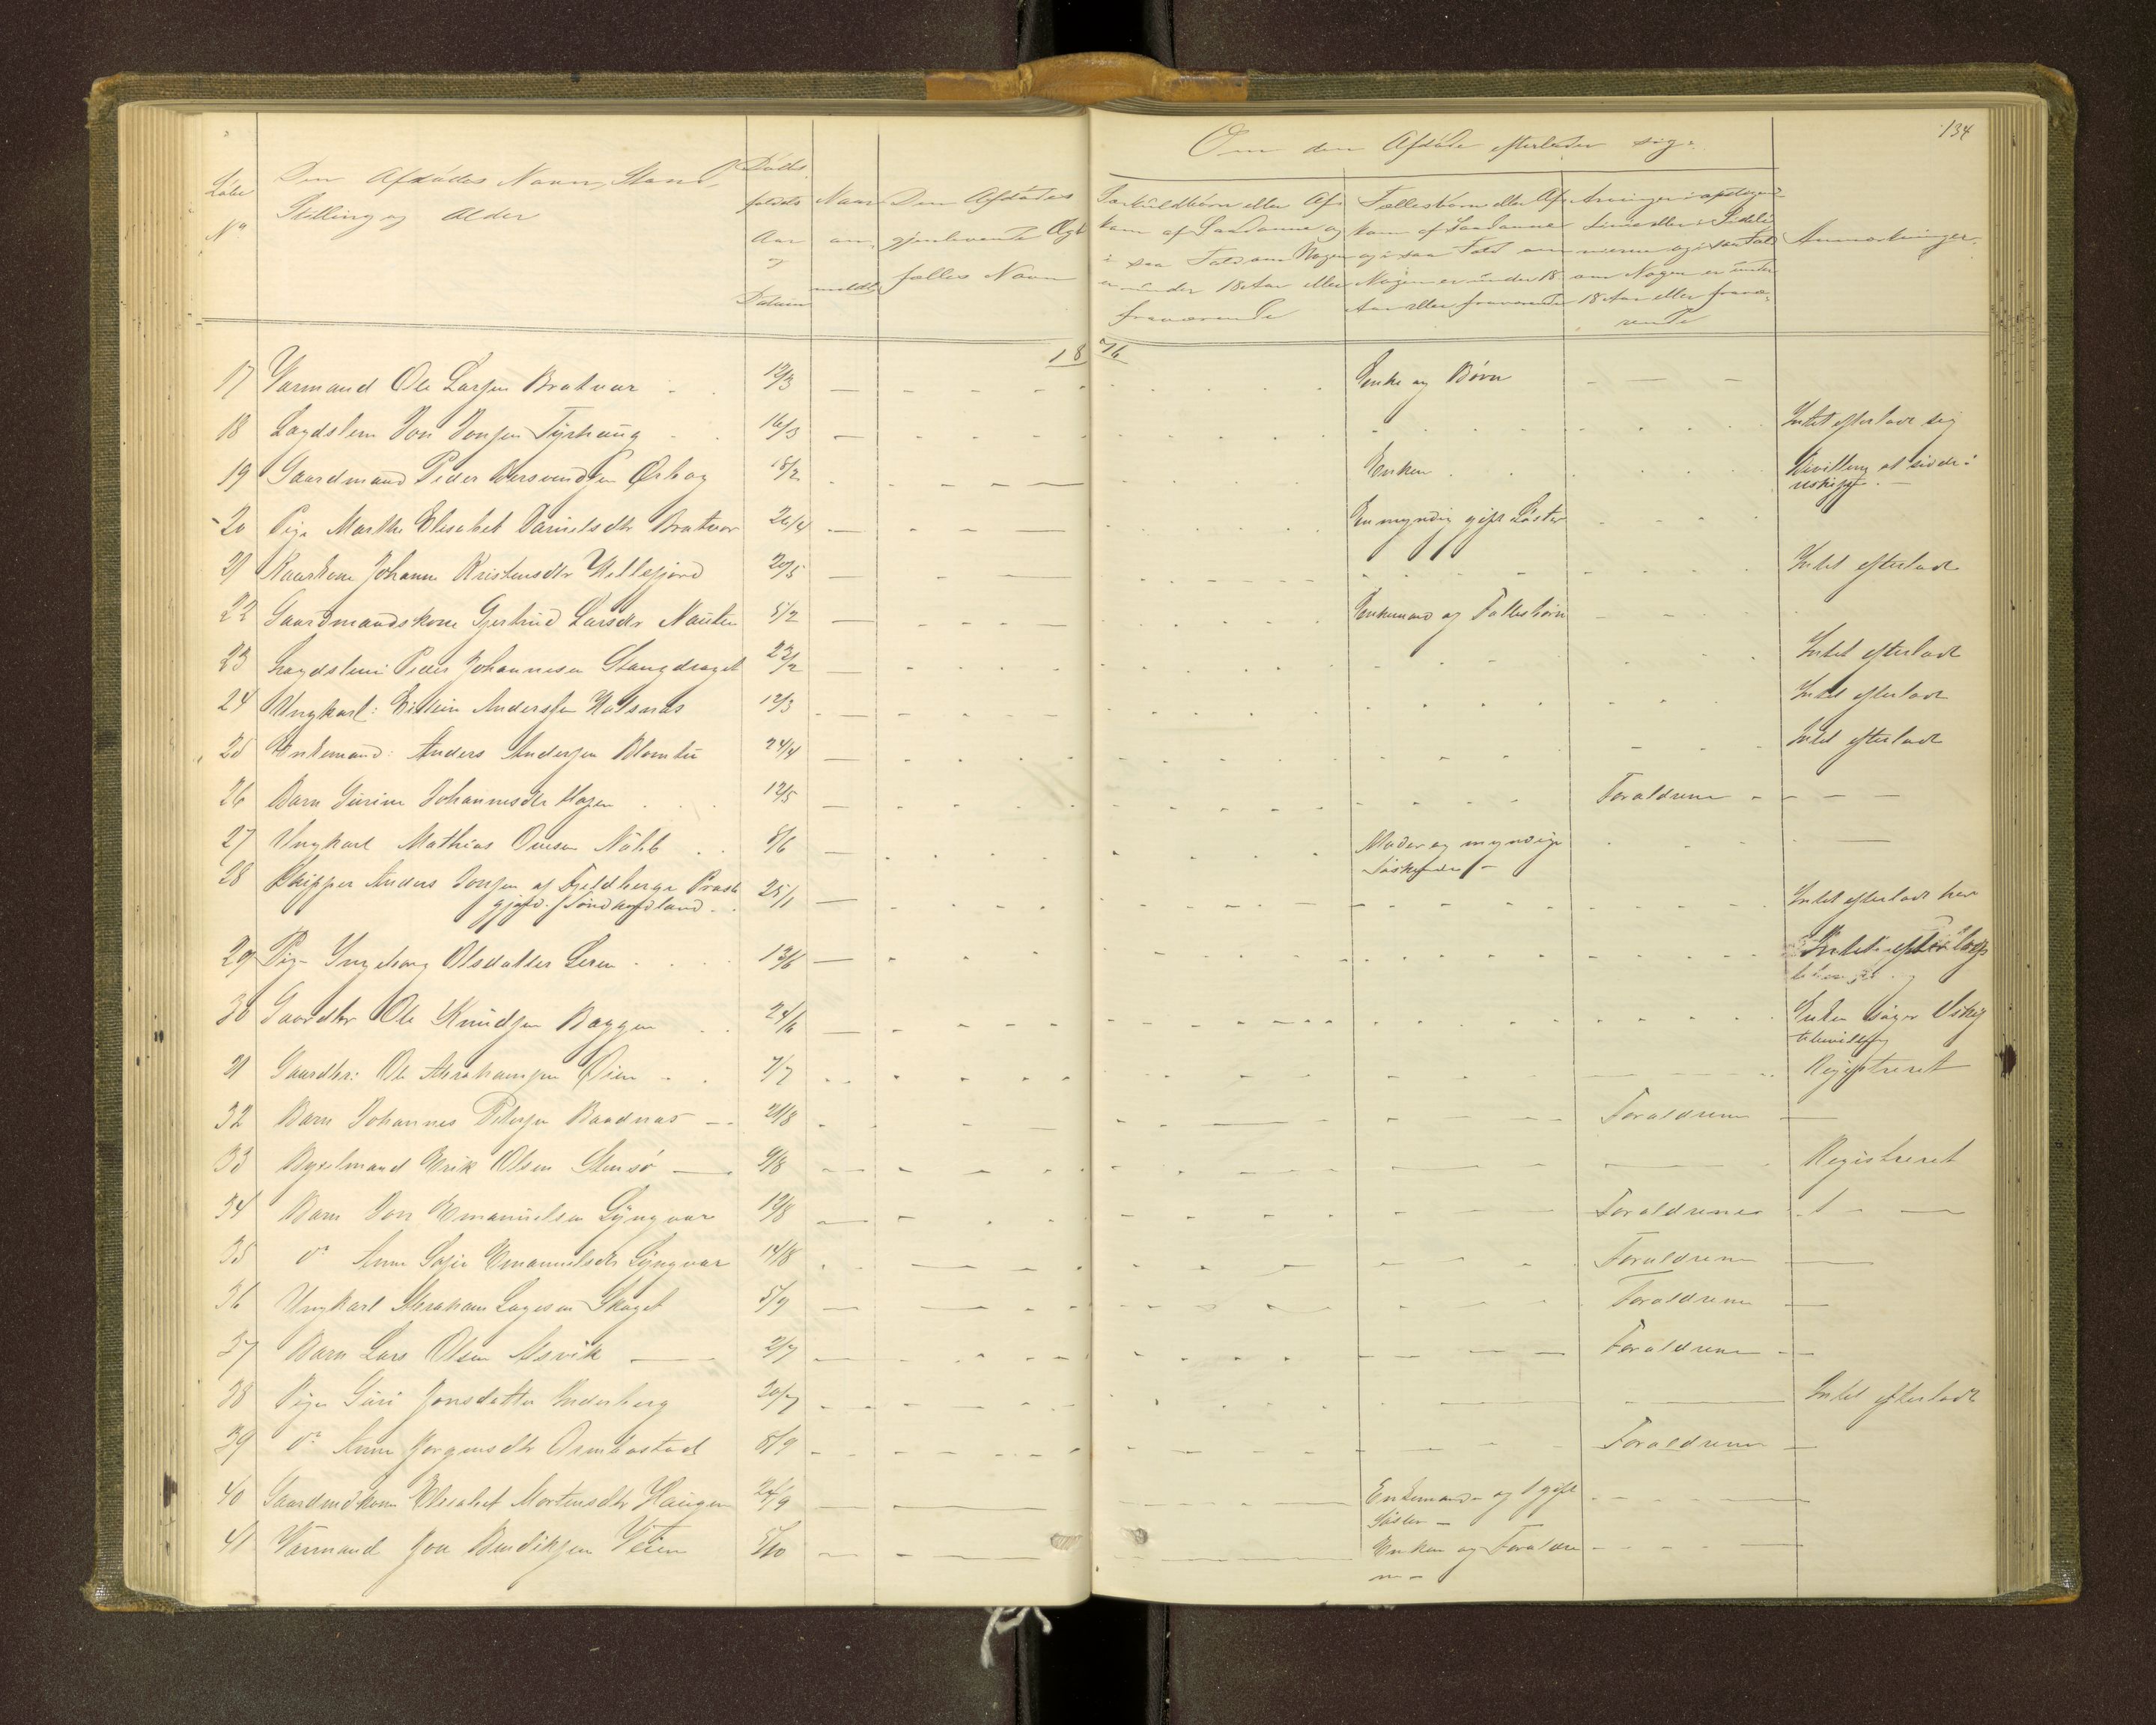 134
Om den Afdøde efterlader sig:
Løbe
No
Den Afdødes Navn, Stand,
Stilling og Alder
Døds
faldets
Aar
og
Datum
Naar
an
meldt
Den Afdødes
gjenlevende Ægte
fælles Navn
Særkuldbørn eller Af
kom af Saadanne og
i saa Fald om Nogen
er under 18 Aar eller
fraværende
Fællesbørn eller Af
kom af Saadanne
og i saa Fald om
Nogen er under 18
Aar eller fraværende
Arvinger i opstigende
Linie eller i Sideli
nierne og i saa Fald
om Nogen er under
18 Aar eller fravæ
rende
Anmærkninger.
1876
17 Værmand Ole Larsen Bratvær 12/3 Enke og Børn
18 Lægdslem Jon Jonsen Tyrhaug 16/3 Intet efterladt sig
19 Gaardmand Peder Ørbog 18/2 Enken Bevilling at sidde i
uskiftet
20 Pige Marthe Elisabet Danielsdtr Bratvær 26/4 En myndig gift Søster
21 Johanne Kristensdtr Hellefjord 20/5 Intet efterladt
22 Gaardmandskone Gjertrud Larsdtr Nausten 5/2 Enkemand og Fællesbørn
23 Lægdslem Peder Johannesen Stangdraget 23/2 Intet efterladt
24 Ungkarl: Eistein Andersen Halsnæs 12/3 Intet efterladt
25 Enkemand: Anders Andersen Blomlie 24/4 Intet efterladt
26 Barn Gurine Johannesdtr Hagen 12/5 Forældrene
27 Ungkarl Mathias 8/6 Moder og myndige
Søskende
28 Skipper Anders Jonsen af Fjeldberge Præste
gjæld. Søndhordland 25/1 Intet efterladt her
29 Pige Ingeborg Olsdatter Leren 13/6 Intet
30 Gaardbr Ole Knudsen Bæggen 24/6 Enken søger Uskif
tebevilling
31 Gaardbr: Ole Abrahamsen Øien 7/7 Registreret
32 Barn Johannes Petersen Baadnæs 21/8 Forældrene
33 Bygselmand Erik Olsen Stensø 9/8 Registreret
34 Barn Jon Emanuelsen Lyngvær 12/8 Forældrene
35 do Anne Emanuelsdtr Lyngvær 14/8 Forældrene
36 Ungkarl Abraham Skaget 5/9 Forældrene
37 Barn Lars Olsen Aasvik 2/7 Forældrene
38 Pige Guri Jonsdatter Inderberg 20/7 Intet efterladt
39 do Anne Jørgensdtr Ormbostad 8/9 Forældrene
40 Gaardmdkone Elisabet Mortensdtr Haugen 24/9 Enkemand og 1 gift
Søster
41 Værmand Joa Bendiksen Veien 5/10 Enken og Forældre
ne